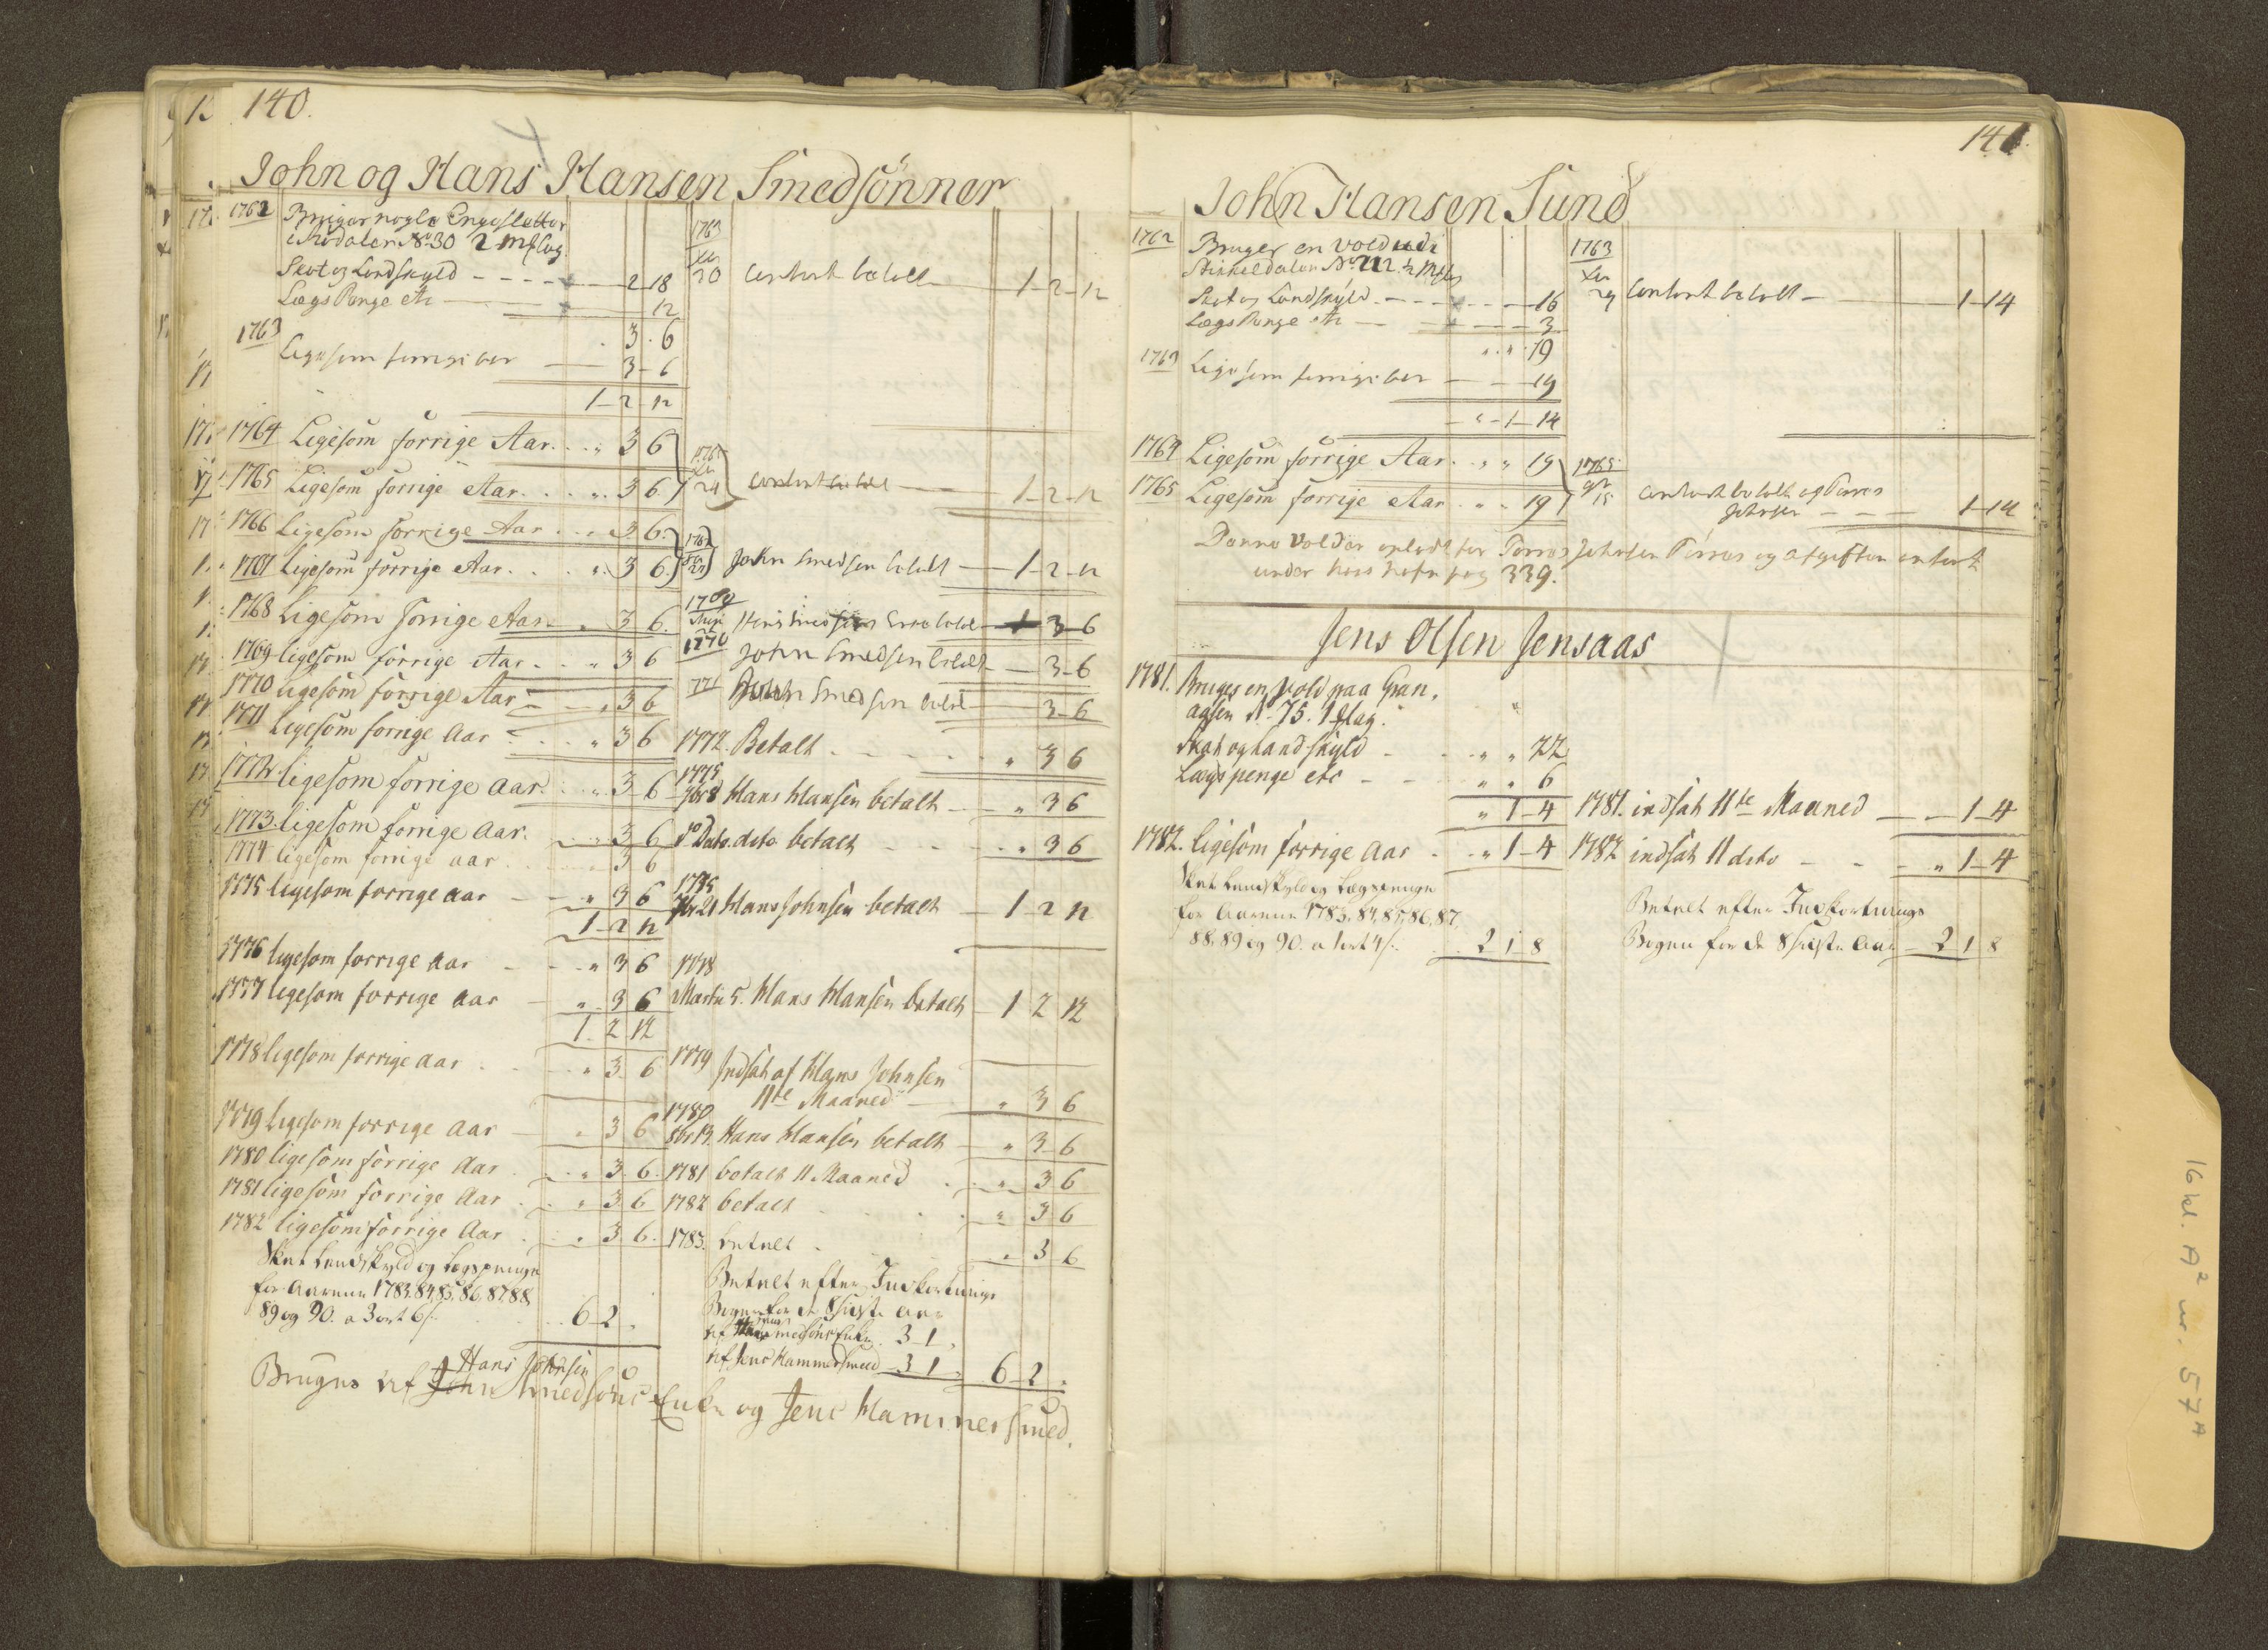 140.
John og Hans Hansen Smedsönner
1762 Bruger nogle Engesletter
No 30 2 Mslag
Skat og Landskyld - - - - 2 - 18
Lægs Penge etc - 12
3 - 6
1763 Ligesom forrige Aar - 3 - 6
1 - 2 - 12
1764 Ligesom forrige Aar . . „ 3 6
1765 Ligesom forrige Aar . . „ 3 6
1766 Ligesom forrige Aar . . „ 3 6
1767 Ligesom forrige Aar . . „ 3 6
1768 Ligesom forrige Aar „ 3 6
1769 ligesom forrige Aar . . „ 3 6
1770 ligesom forrige Aar „ 3 6
1771 Ligesom forrige Aar „ 3 6
1772 ligesom forrige Aar . . „ 3 - 6
1773. ligesom forrige Aar. 3 6
1774 ligesom forrige aar 3 6
1775 ligesom forrige aar „ 3 6
1 - 2 12
1776 ligesom forrige aar „ 3 6
1777 ligesom forrige aar „ 3 6
1 2 12
1778 ligesom forrige aar „ 3 6
1779 ligesom forrige Aar „ 3 6
1780 ligesom forrige Aar „ 3 6
1781 ligesom forrige Aar „ 3 6
1782 ligesom forrige Aar „ 3 6.
Skat Landskyld og Lægspenge
for Aarene 1783. 84. 85. 86. 87. 88.
89 og 90. a 3 ort 6 s. 6 - 2 „
Hans Johnsen
Bruges af John Smedsöns Enke og Jens Hammersmed.
1763
20 contant betalt - 1 - 2 - 12
24 contant betalt - 1 - 2 - 12
John Smedsen betalt - 1 - 2 - 12
3 - 6
1770 John Smedsen betalt - 3 - 6
771 John Smedsen betalt 3 - 6
1772. Betalt „ 3 6
1775
7br 8 Hans Hansen betalt - „ 3 6
do Dato. dito betalt „ 3 6
1775
21 Hans Johnsen betalt - 1 - 2 12
1778
Martii 5. Hans Hansen betalt - 1 2 12
1779 Indsat af Hans Johnsen
11te Maaned „ 3 6
1780
8br 13. Hans Hansen betalt „ 3 - 6
1781 betalt 11 Maaned „ 3 6
1782 betalt „ 3 6
1783. betalt „ 3 - 6
Betalt efter Indkortnings
Bogen for de 8 sidste Aar
af Smedsöns Enke 3 1 „
af Jens Hammersmed 3 1 „ 6 - 2 „
141.
John Hansen Sund
1762 Bruger en Vold udi
No 212 ½ Mslag
Skat og Landskyld - - - - 16
Lægs Penge etc - - - 3
„ „ 19
1763 Ligesom forrige Aar - - 19
„ - 1 - 14
1764 Ligesom forrige Aar . „ „ 19
1765 Ligesom forrige Aar . „ „ 19
Denne Vold er opladt for Johnsen og afgiften anført
under hans Nafn pag 339.
1763
29 Contant betalt - 1 - 14
1765
15 contant betalt af
Johnsen - - - 1 - 14
Jens Olsen Jensaas
1781. Bruges en Vold paa Gran,
aasen No 75. 1 slag.
Skat og Landskyld „ „ 22
Lægspenge etc - „ „ 6
„ 1 - 4
1782. ligesom forrige Aar „ 1 - 4
Skat Landskyld og Lægspenge
for Aarene 1783. 84. 85. 86. 87.
88. 89 og 90. a 1 ort 4 s. 2 1 - 8
1781. indsat 11te Maaned - 1 - 4
1782 indsat 11 dito - - „ 1 - 4
Betalt efter Indkortnings
Bogen for de 8 sidste Aar 2 1 8
16 kl. A2 nr. 57A